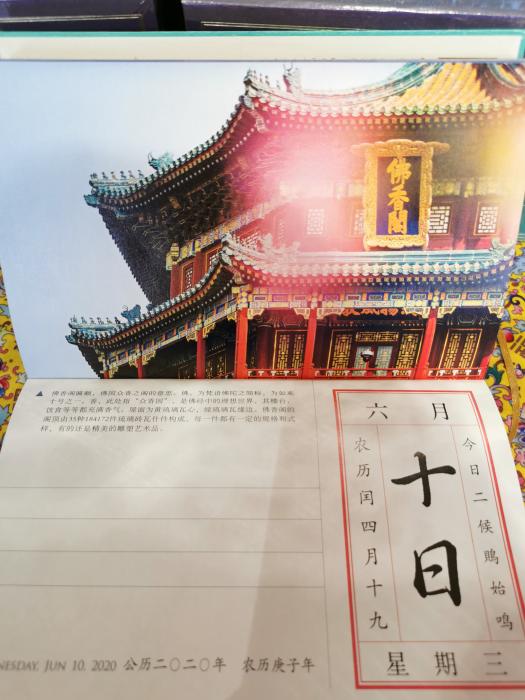 佛香阁
佛香阁匾额，佛国众香之阁的意思。佛，为梵语佛陀之简称，为如来
十号之一。香，此处指“众香国”，是佛经中的理想世界，其楼台、
饮食等等都充满香气。屋面为黄琉璃瓦心，绿琉璃瓦缘边。佛香阁的
阁顶由35种184172件琉璃砖瓦什件构成，每一件都有一定的规格和式
样，有的还是精美的雕塑艺术品。
六月
今日二候鵙始鸣
十日
农历闰四月十九
星期三
NESDAY, JUN 10, 2020 公历二〇二〇年 农历庚子年